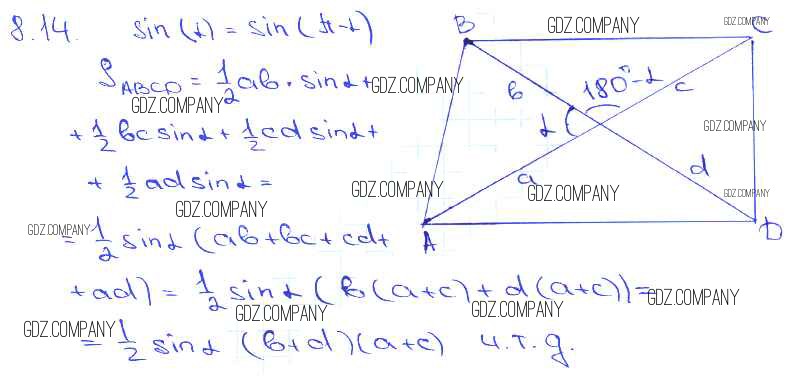 8.14. sin(α) = sin(π-α)
S ABCD = 1/2 ab · sinα +
+ 1/2 bc sinα + 1/2 cd sinα +
+ 1/2 ad sinα =
= 1/2 sinα (ab+bc+cd+
+ad) = 1/2 sinα (b(a+c)+d(a+c)) =
= 1/2 sinα (b+d)(a+c) ч.т.д.
B
C
b
180°-α
c
α
a
d
A
D
GDZ.COMPANY
GDZ.COMPANY
GDZ.COMPANY
GDZ.COMPANY
GDZ.COMPANY
GDZ.COMPANY
GDZ.COMPANY
GDZ.COMPANY
GDZ.COMPANY
GDZ.COMPANY
GDZ.COMPANY
GDZ.COMPANY
GDZ.COMPANY
GDZ.COMPANY